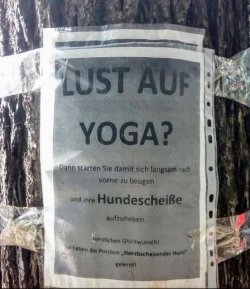 LUST AUF
YOGA?
Dann starten Sie damit sich langsam nach
vorne zu beugen
und ihre Hundescheiße
aufzuheben.
Herzlichen Glückwunsch!
Sie haben die Position „Herabschauender Hund"
gelernt!